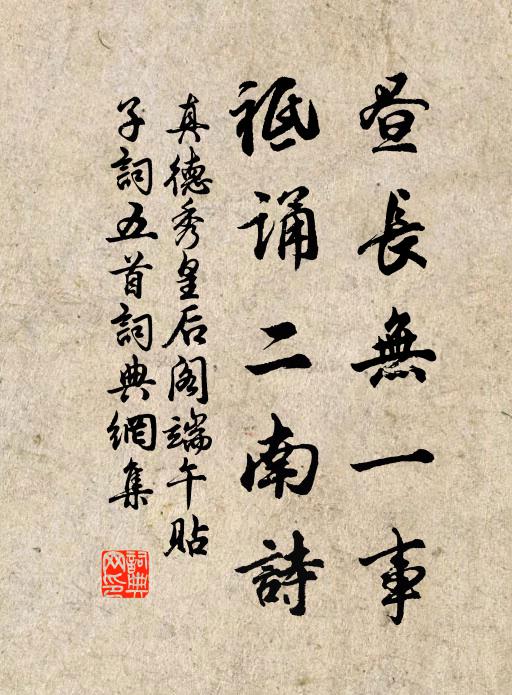 昼長無一事
祗诵二南詩
真德秀皇后阁端午貼
子詞五首詞典網集
詞典网印